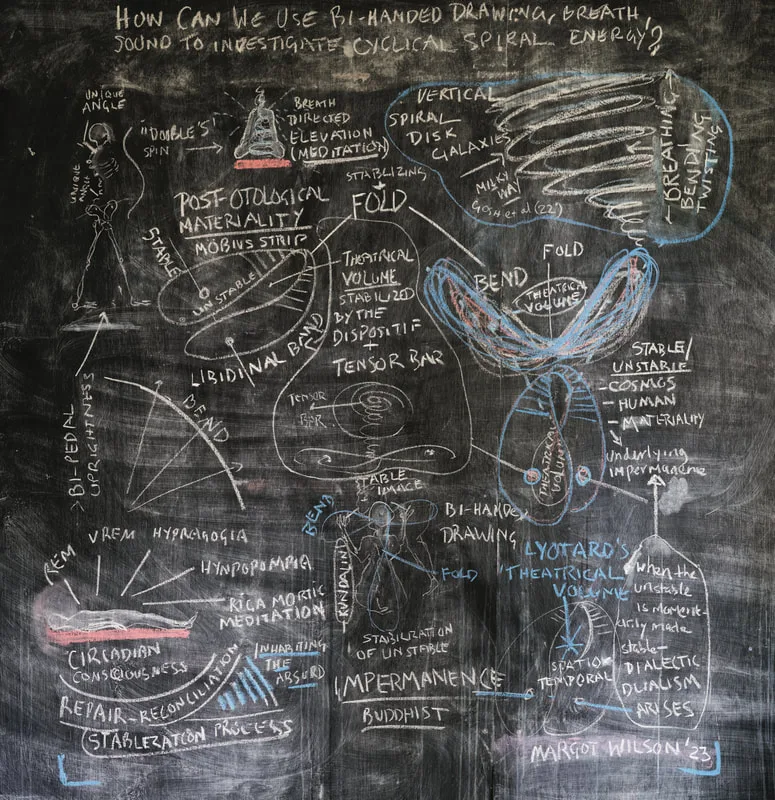 HOW CAN WE USE BI-HANDED DRAWING, BREATH,
SOUND TO INVESTIGATE CYCLICAL SPIRAL ENERGY?
UNIQUE
ANGLE
"DOUBLE'S"
SPIN
BREATH
DIRECTED
ELEVATION
(MEDITATION)
VERTICAL
SPIRAL
DISK
GALAXIES
MILKY
WAY
BREATHING
BENDING
TWISTING
STABILIZING
FOLD
POST-OTOLOGICAL
MATERIALITY
MÖBIUS STRIP
STABLE
UNSTABLE
LIBIDINAL BAND
THEATRICAL
VOLUME
STABILIZED
BY THE
DISPOSITIF
+
TENSOR BAR
TENSOR
BAR
FOLD
BEND
THEATRICAL
VOLUME
THEATRICAL
VOLUME
STABLE/
UNSTABLE
-COSMOS
-HUMAN
-MATERIALITY
underlying
impermanence
BI-PEDAL
UPRIGHTNESS
BEND
STABLE IMAGE
BEND
BI-HANDED
DRAWING
FOLD
KUNDALINI
STABILIZATION
OF UNSTABLE
LYOTARD'S
'THEATRICAL
VOLUME
when the
unstable
is moment-
arily made
stable-
DIALECTIC
DUALISM
ARISES
SPATIO
TEMPORAL
REM
VREM
HYPNAGOGIA
HYNPOPOMPIA
RIGA MORTIC
MEDITATION
CIRCADIAN
CONSCIOUSNESS
INHABITING
THE
ABSURD
REPAIR-RECONCILIATION
STABLEZATION PROCESS
IMPERMANENCE
BUDDHIST
MARGOT WILSON '23